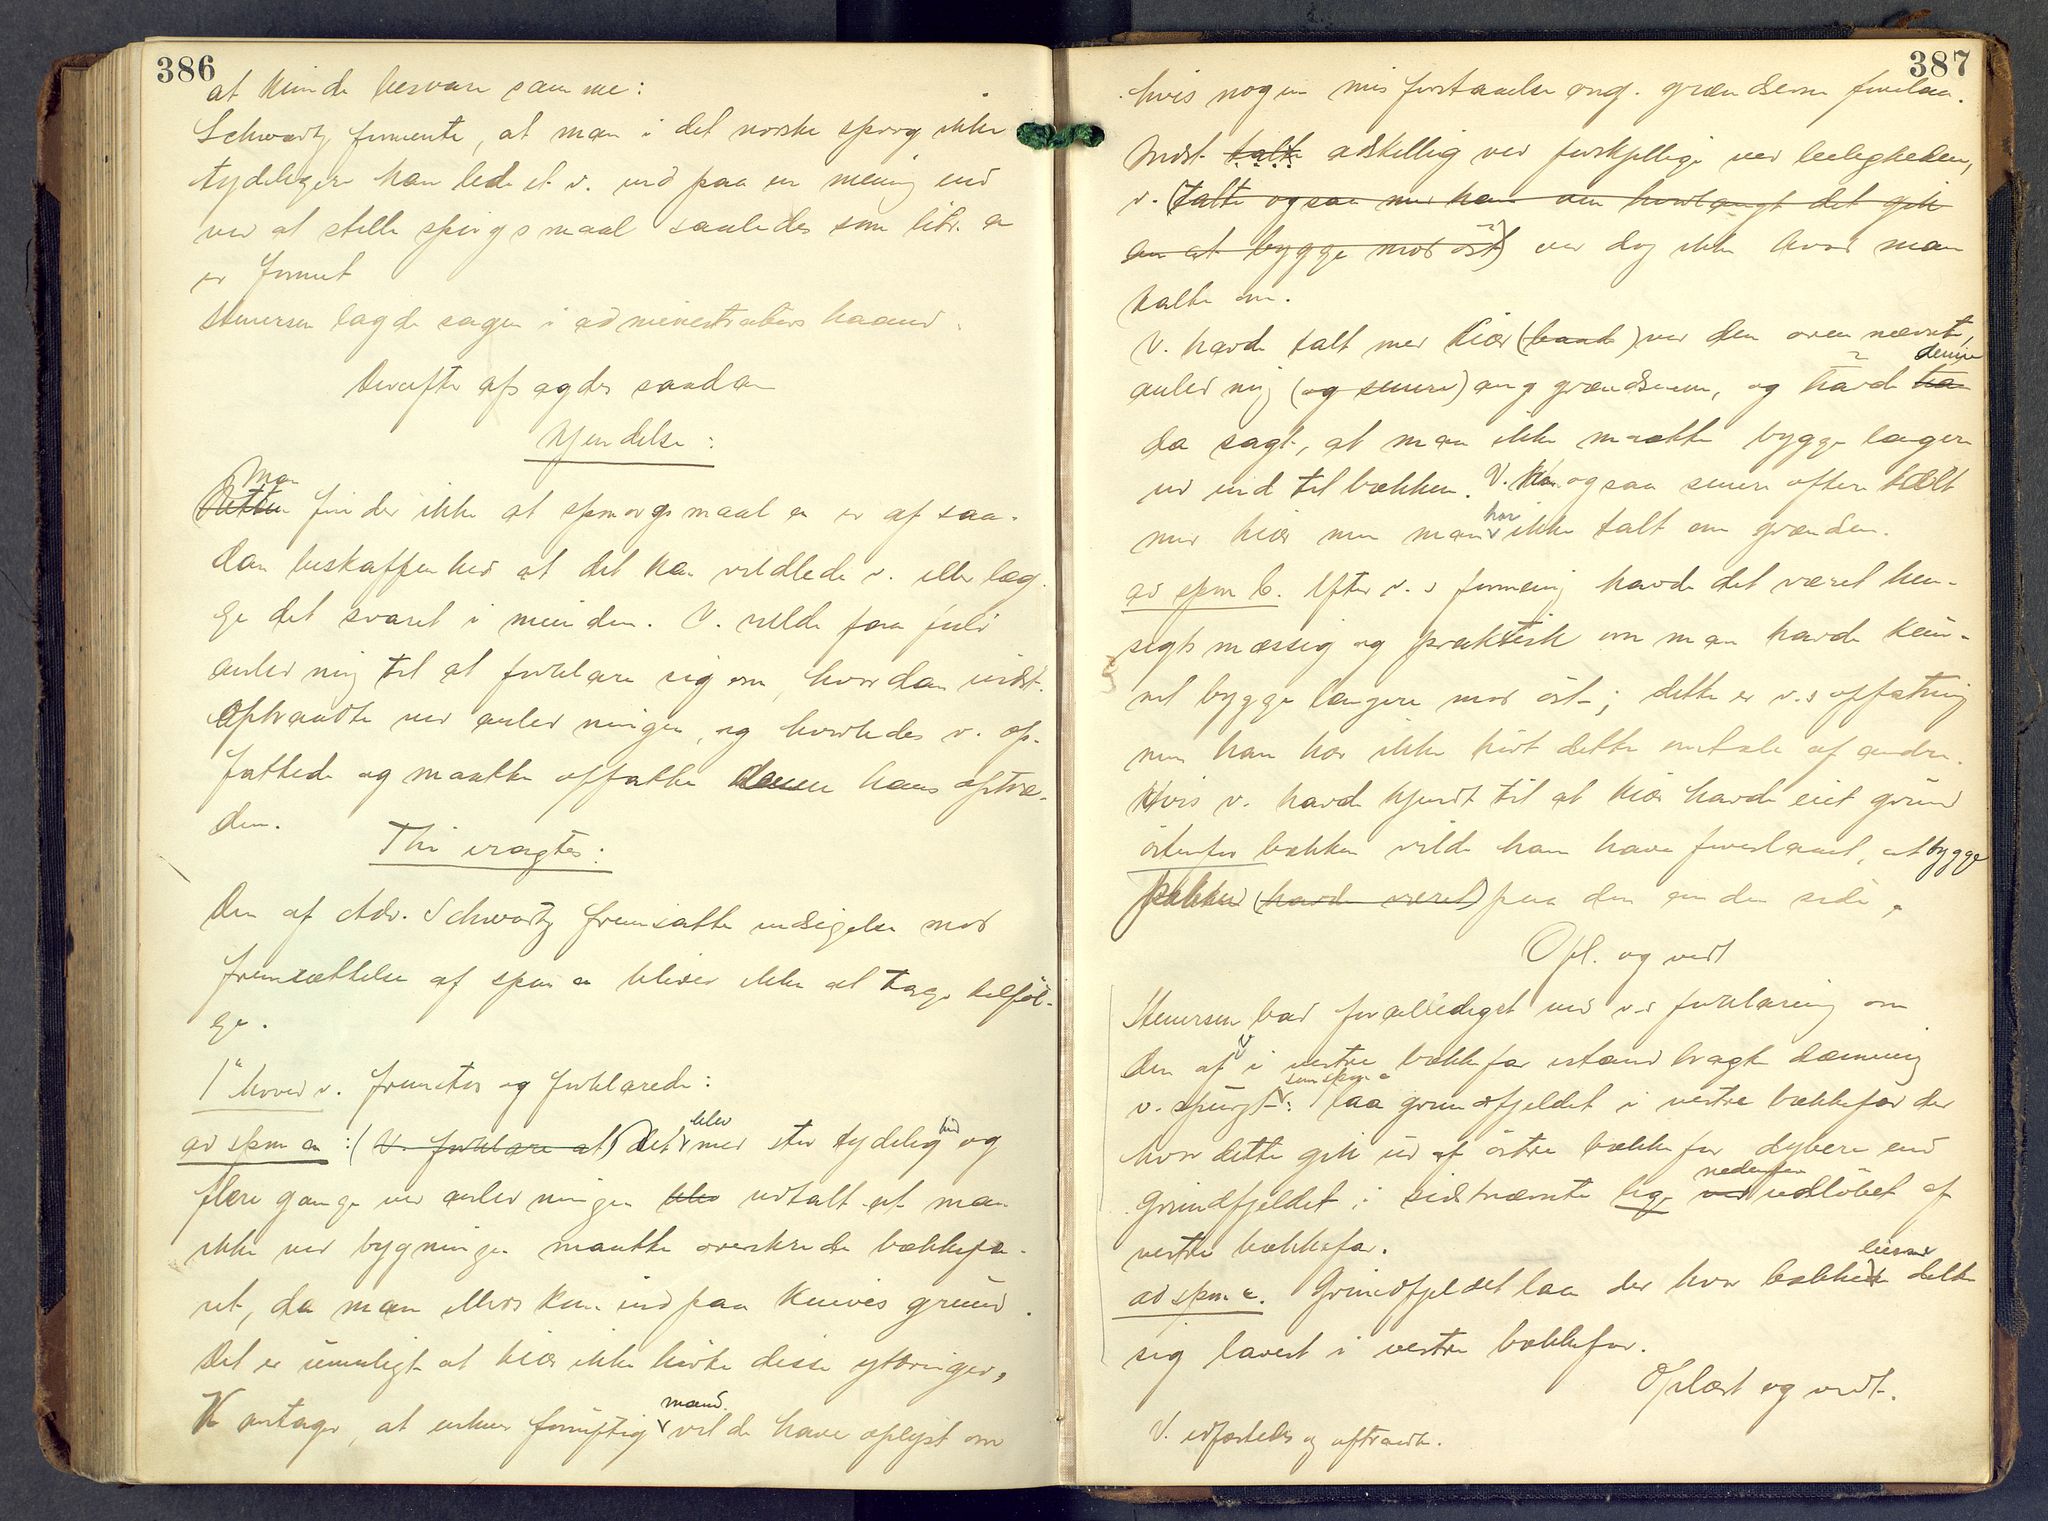 386
at kunde besvare samme:
Schwartz formente, at man i det norske sprog ikke
tydeligere kan lede et v. ind paa en mening end
ved at stille spörgsmaal saaledes som litr. a
er formet
Steuersen lagde sagen i administrators haand.
Derefter afsagdes saadan
Kjendelse:
Retten Man finder ikke at spörgsmaal a er af saa-
dan beskaffenhed at det kan vildlede v. eller læg-
ge det svaret i munden. V. vilde faa fuld
anledning til at forklare sig om, hvordan indst.
optraadte ved anledningen, og hvorledes v. op-
fattede og maatte opfatte hans optræ-
den.
Thi eragtes:
Den af Adv. Schwartz fremsatte indsigelse mod
fremsættelse af spm a bliver ikke at tage tilföl-
ge.
1" hoved v. fremstod og forklarede:
ad spm a: (V. forklare at) det blev med stor tydelighed og
flere gange ved anledningen blev udtalt at man
ikke ved bygningen maatte overskride bækkefa-
ret, da man ellers kom ind paa Knives grund.
Det er umuligt at Kiær ikke hörte disse ytringer,
V antager, at enhver fornuftig mand vilde have oplyst om
387
hvis nogen misforstaaelse ang. grændserne forelaa.
Indst. talte adskillig ved forskjellige ved leiligheden,
v. (talte ogsaa med ham om hvorlangt det gik
an at bygge mod öst) ved dog ikke hvad man
talte om.
V. havde talt med Kiær (baade) ved den oven nævnte
anledning (og senere) ang grændserne, og havde denne
da sagt, at man ikke maatte bygge længere
ud end til bækken. V. har ogsaa senere oftere talt
med Kiær men man har ikke talt om grænden.
ad spm b. Efter v.s formening havde det været hen-
sigtsmæssig og praktisk om man havde kun-
net bygge længere mod öst; dette er v.s opfatning
men han har ikke hört dette omtale af andre.
Hvis v. havde kjendt til at Kiær havde eiet grund
östenfor bækken vilde han have foreslaaet, at bygge
(havde været) paa den anden side.
Opl. og vedt
Steuersen bad foranlediget ved v.s forklaring om
den af v i vestre bækkefar istandbragte dæmning
v. spurgt som spm c: laa grundfjeldet i vestre bækkefar der
hvor dette gik ud af östre bækkefar dybere end
grundfjeldet i sidstnævnte lige ved nedenfor udlöbet af
vestre bækkefar.
ad spm c. Grundfjeldet laa der hvor bækken delte
sig lavest i vestre bækkefar.
Oplæst og vedt.
V. edfæstedes og aftraadte.